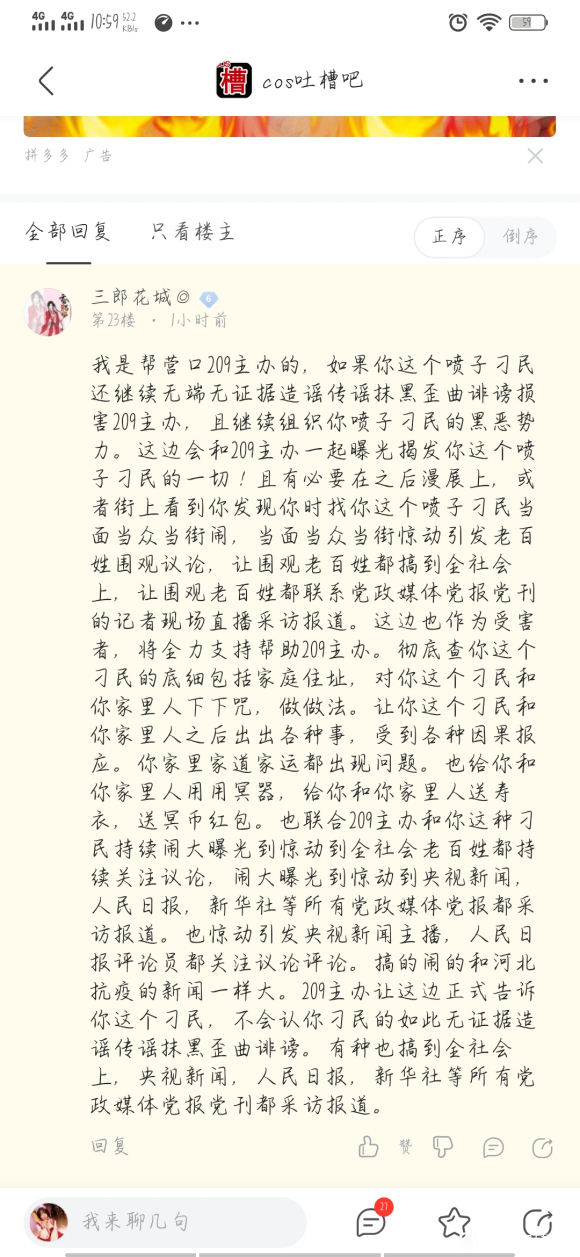 4G 4G 10:59 52.2 KB/s 59
槽 cos吐槽吧
拼多多 广告
全部回复 只看楼主 正序 倒序
三郎花城◎ 6
第23楼 · 1小时前
我是帮营口209主办的，如果你这个喷子刁民
还继续无端无证据造谣传谣抹黑歪曲诽谤损
害209主办，且继续组织你喷子刁民的黑恶势
力。这边会和209主办一起曝光揭发你这个喷
子刁民的一切！且有必要在之后漫展上，或
者街上看到你发现你时找你这个喷子刁民当
面当众当街闹，当面当众当街惊动引发老百
姓围观议论，让围观老百姓都搞到全社会
上，让围观老百姓都联系党政媒体党报党刊
的记者现场直播采访报道。这边也作为受害
者，将全力支持帮助209主办。彻底查你这个
刁民的底细包括家庭住址，对你这个刁民和
你家里人下下咒，做做法。让你这个刁民和
你家里人之后出出各种事，受到各种因果报
应。你家里家道家运都出现问题。也给你和
你家里人用用冥器，给你和你家里人送寿
衣，送冥币红包。也联合209主办和你这种刁
民持续闹大曝光到惊动到全社会老百姓都持
续关注议论，闹大曝光到惊动到央视新闻，
人民日报，新华社等所有党政媒体党报都采
访报道。也惊动引发央视新闻主播，人民日
报评论员都关注议论评论。搞的闹的和河北
抗疫的新闻一样大。209主办让这边正式告诉
你这个刁民，不会认你刁民的如此无证据造
谣传谣抹黑歪曲诽谤。有种也搞到全社会
上，央视新闻，人民日报，新华社等所有党
政媒体党报党刊都采访报道。
回复 赞
我来聊几句 27